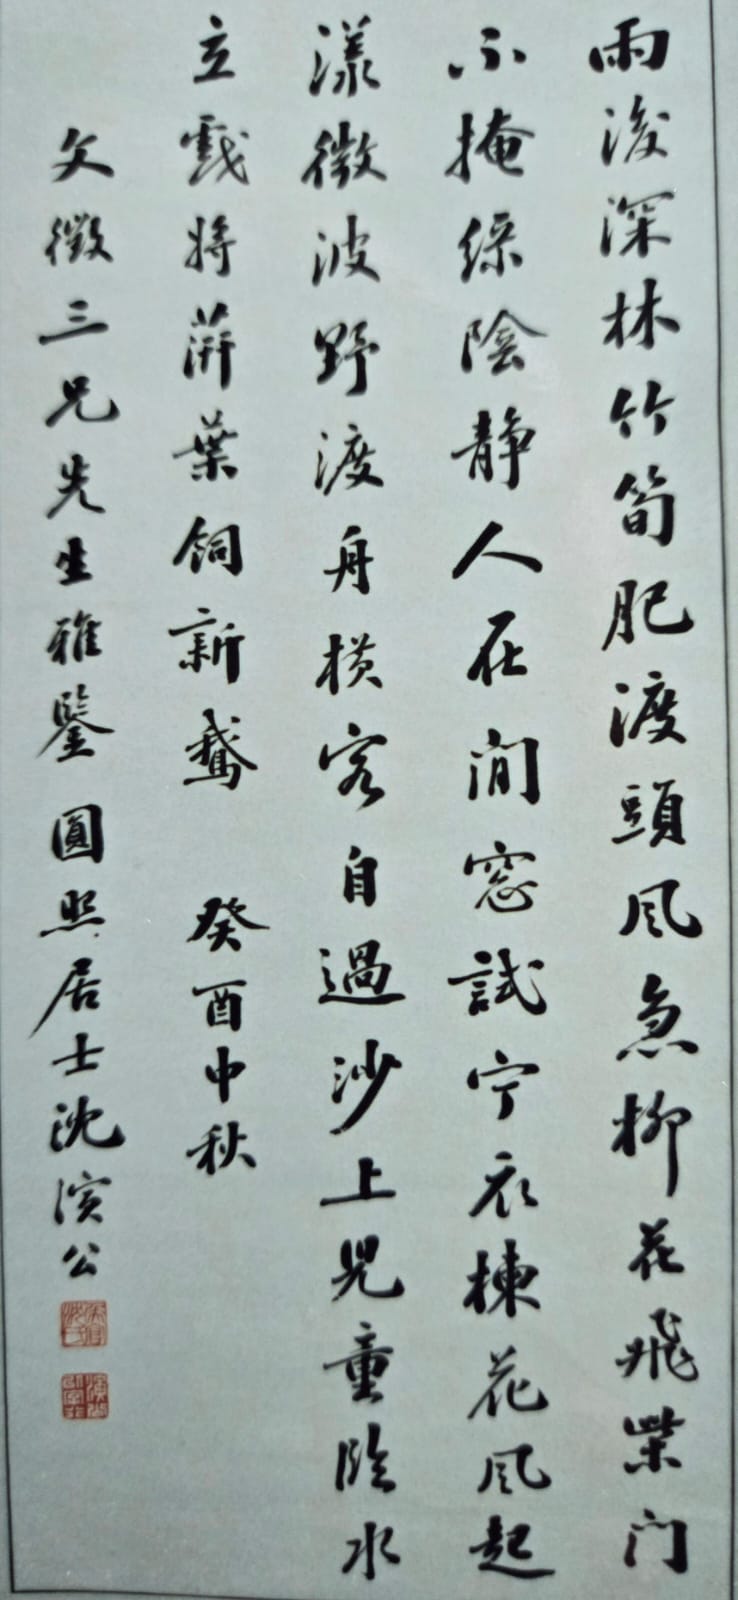 雨後深林竹筍肥渡頭風急柳花飛柴门
不掩綠陰靜人在閒窓試宁衣楝花風起
漾微波野渡舟橫客自過沙上兒童臨水
立戲將萍葉飼新鵝 癸酉中秋
文徵三兄先生雅鑒 圓照居士沈演公